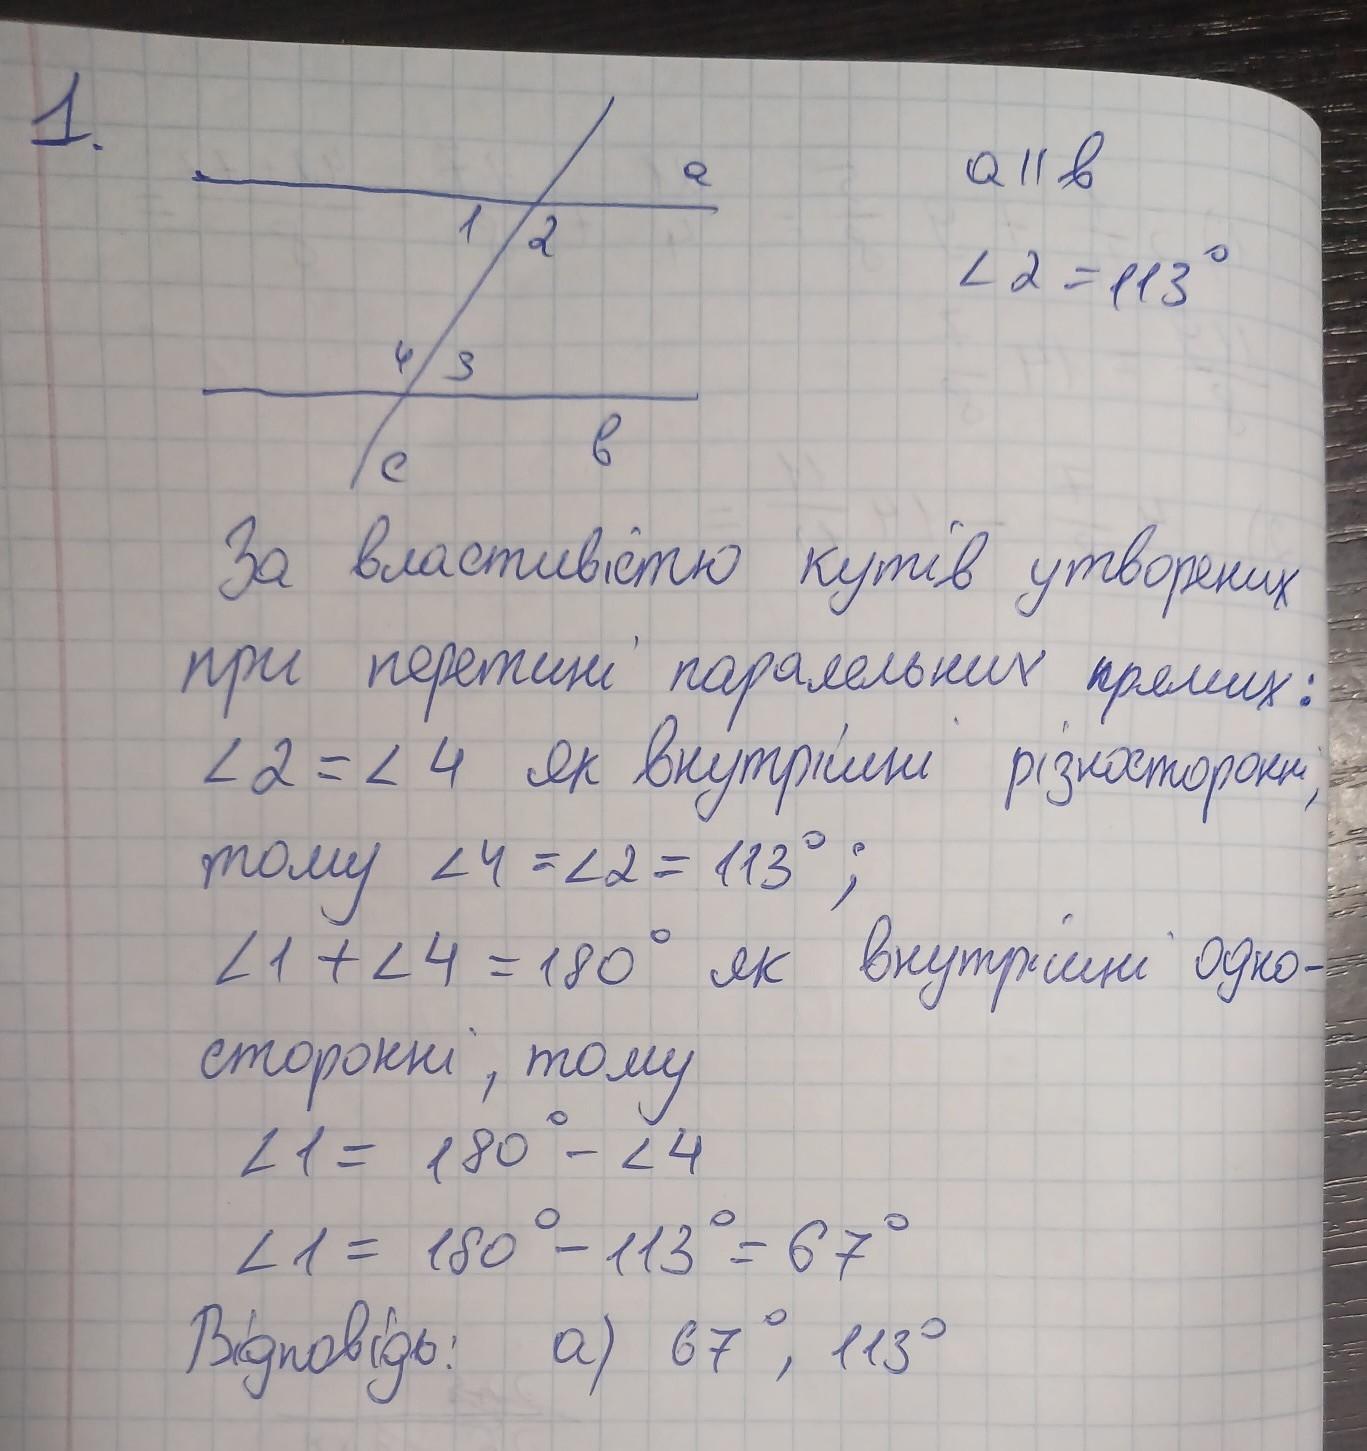 1.
a
a || в
1 2
∠2 = 113°
4 3
в
c
За властивістю кутів утворених
при перетині паралельних прямих:
∠2 = ∠4 як внутрішні різносторонні,
тому ∠4 = ∠2 = 113°;
∠1 + ∠4 = 180° як внутрішні одно-
сторонні, тому
∠1 = 180° - ∠4
∠1 = 180° - 113° = 67°
Відповідь: а) 67°, 113°